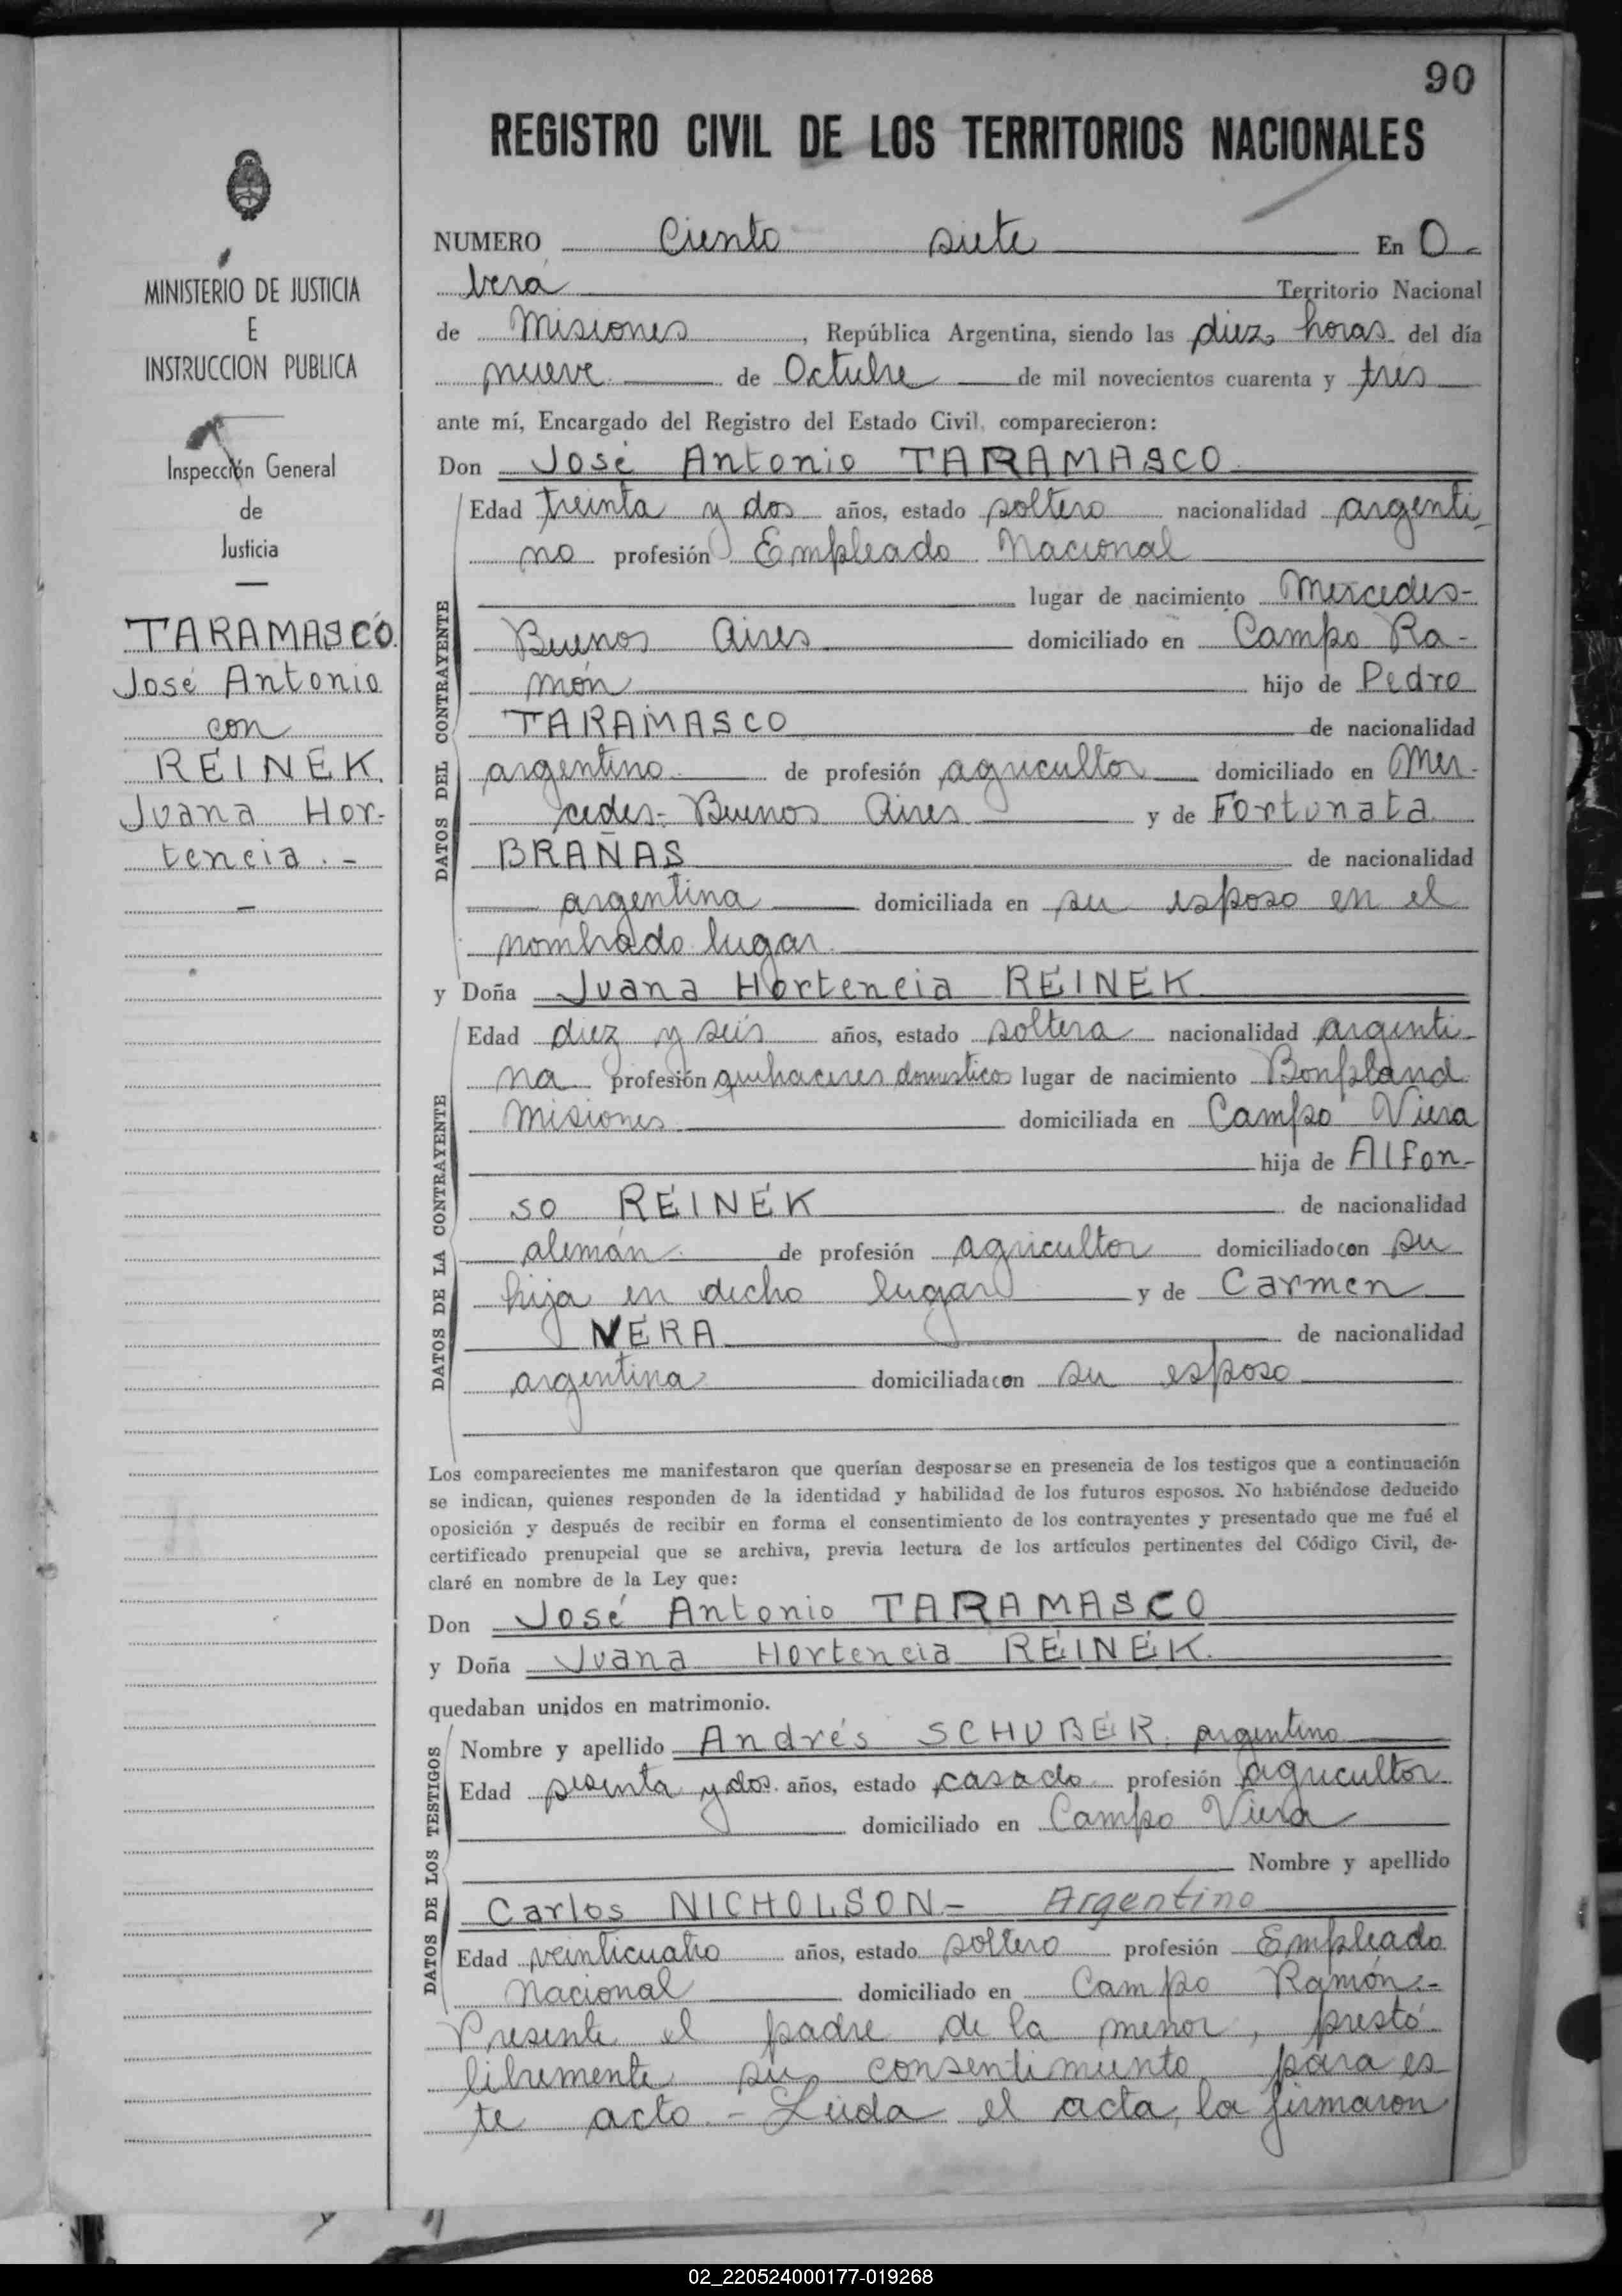 90
REGISTRO CIVIL DE LOS TERRITORIOS NACIONALES
MINISTERIO DE JUSTICIA
E
INSTRUCCION PUBLICA
Inspección General
de
Justicia
TARAMASCO.
José Antonio
con
REINEK.
Juana Hor-
tencia.-
NUMERO Ciento siete En O-
berá Territorio Nacional
de Misiones, República Argentina, siendo las diez horas del día
nueve de Octubre de mil novecientos cuarenta y tres
ante mí, Encargado del Registro del Estado Civil, comparecieron:
Don José Antonio TARAMASCO
DATOS DEL CONTRAYENTE
Edad treinta y dos años, estado soltero nacionalidad argenti-
no profesión Empleado Nacional
lugar de nacimiento Mercedes-
Buenos Aires domiciliado en Campo Ra-
món hijo de Pedro
TARAMASCO de nacionalidad
argentino de profesión agricultor domiciliado en Mer-
cedes- Buenos Aires y de Fortunata
BRAÑAS de nacionalidad
argentina domiciliada en su esposo en el
nombrado lugar.
y Doña Juana Hortencia REINEK
DATOS DE LA CONTRAYENTE
Edad diez y seis años, estado soltera nacionalidad argenti-
na profesión quehaceres domesticos lugar de nacimiento Bonpland
Misiones domiciliada en Campo Viera
hija de Alfon-
so REINEK de nacionalidad
alemán de profesión agricultor domiciliado con su
hija en dicho lugar y de Carmen
VERA de nacionalidad
argentina domiciliada con su esposo
Los comparecientes me manifestaron que querían desposarse en presencia de los testigos que a continuación
se indican, quienes responden de la identidad y habilidad de los futuros esposos. No habiéndose deducido
oposición y después de recibir en forma el consentimiento de los contrayentes y presentado que me fué el
certificado prenupcial que se archiva, previa lectura de los artículos pertinentes del Código Civil, de-
claré en nombre de la Ley que:
Don José Antonio TARAMASCO
y Doña Juana Hortencia REINEK.
quedaban unidos en matrimonio.
DATOS DE LOS TESTIGOS
Nombre y apellido Andrés SCHUBER. argentino
Edad sesenta y dos años, estado casado profesión agricultor
domiciliado en Campo Viera
Nombre y apellido
Carlos NICHOLSON- Argentino
Edad veinticuatro años, estado soltero profesión Empleado
Nacional domiciliado en Campo Ramón.-
Presente el padre de la menor, prestó
libremente su consentimiento para es
te acto.- Leida el acta, la firmaron
02_220524000177-019268